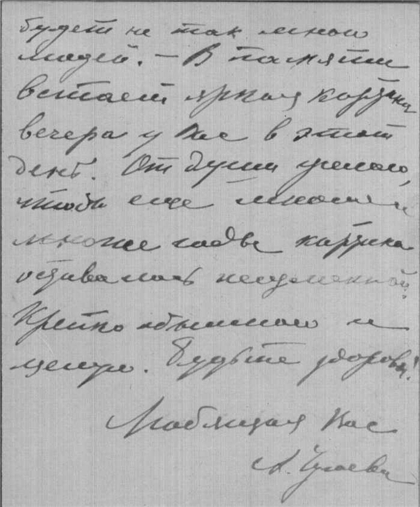 будет не так много
людей. – В памяти
встает яркая картина
вечера у Вас в этот
день. От души желаю,
чтобы еще многие и
многие годы картина
оставалась неизменной.
Крепко обнимаю и
целую. Будьте здоровы!
Любящая Вас
А.